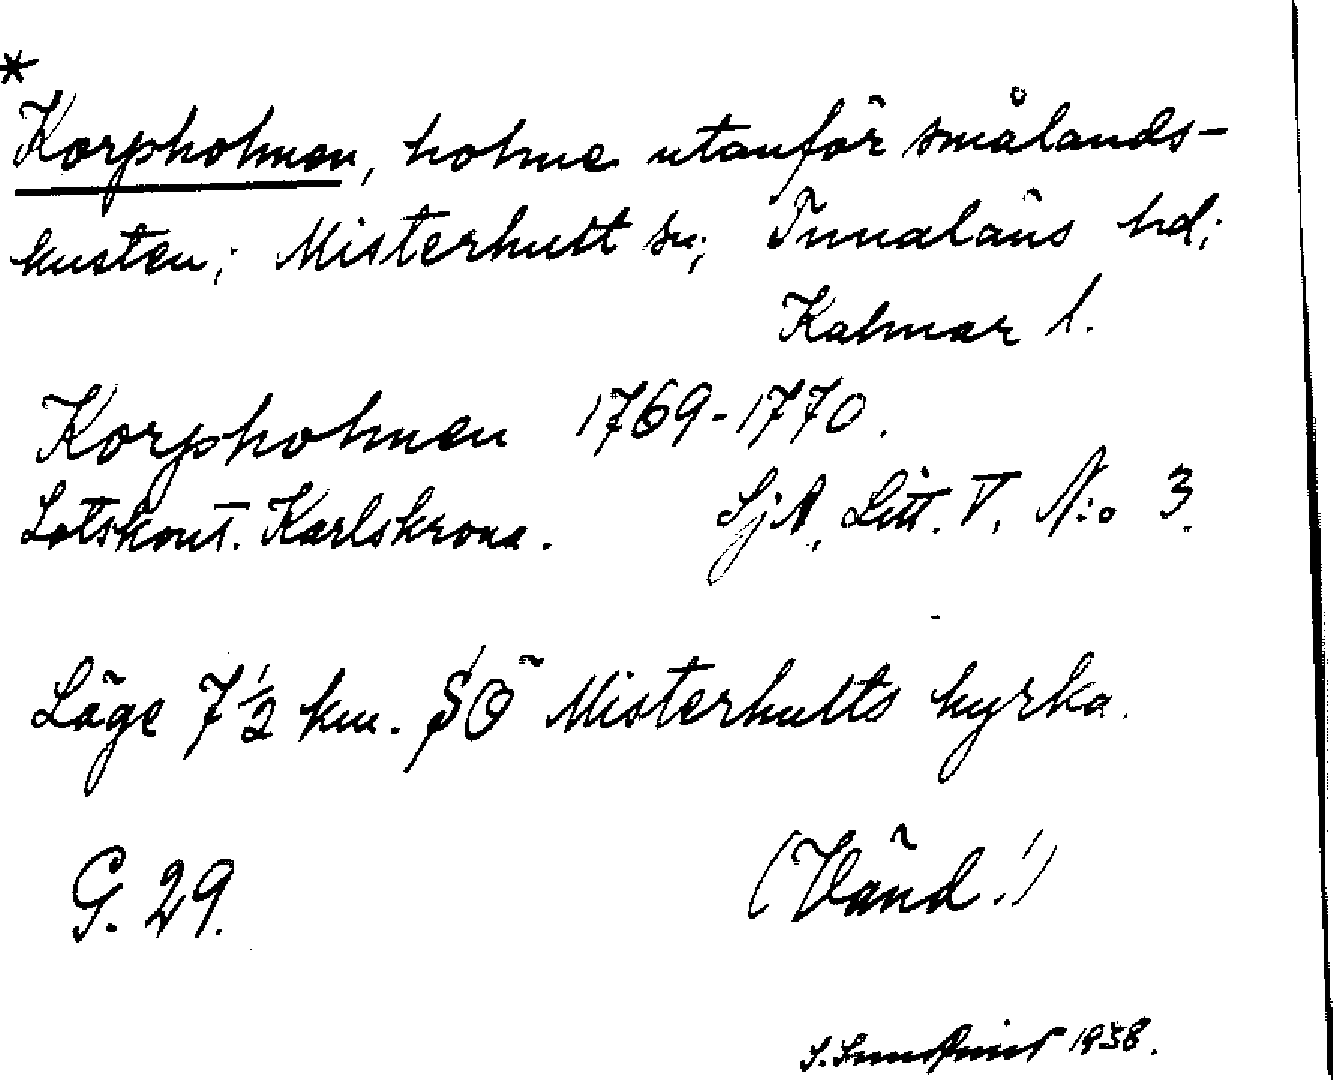 *
Korpholmen, holme utanför smålands-
kusten; Misterhult sn; Tunaläns hd;
Kalmar l.
Korpholmen 1769-1770.
Lotskont. Karlskrona. SjA, Litt. V. N:o 3.
Läge 7 1/2 km. SÖ Misterhults kyrka.
G. 29. (Vänd!)
S. 1938.